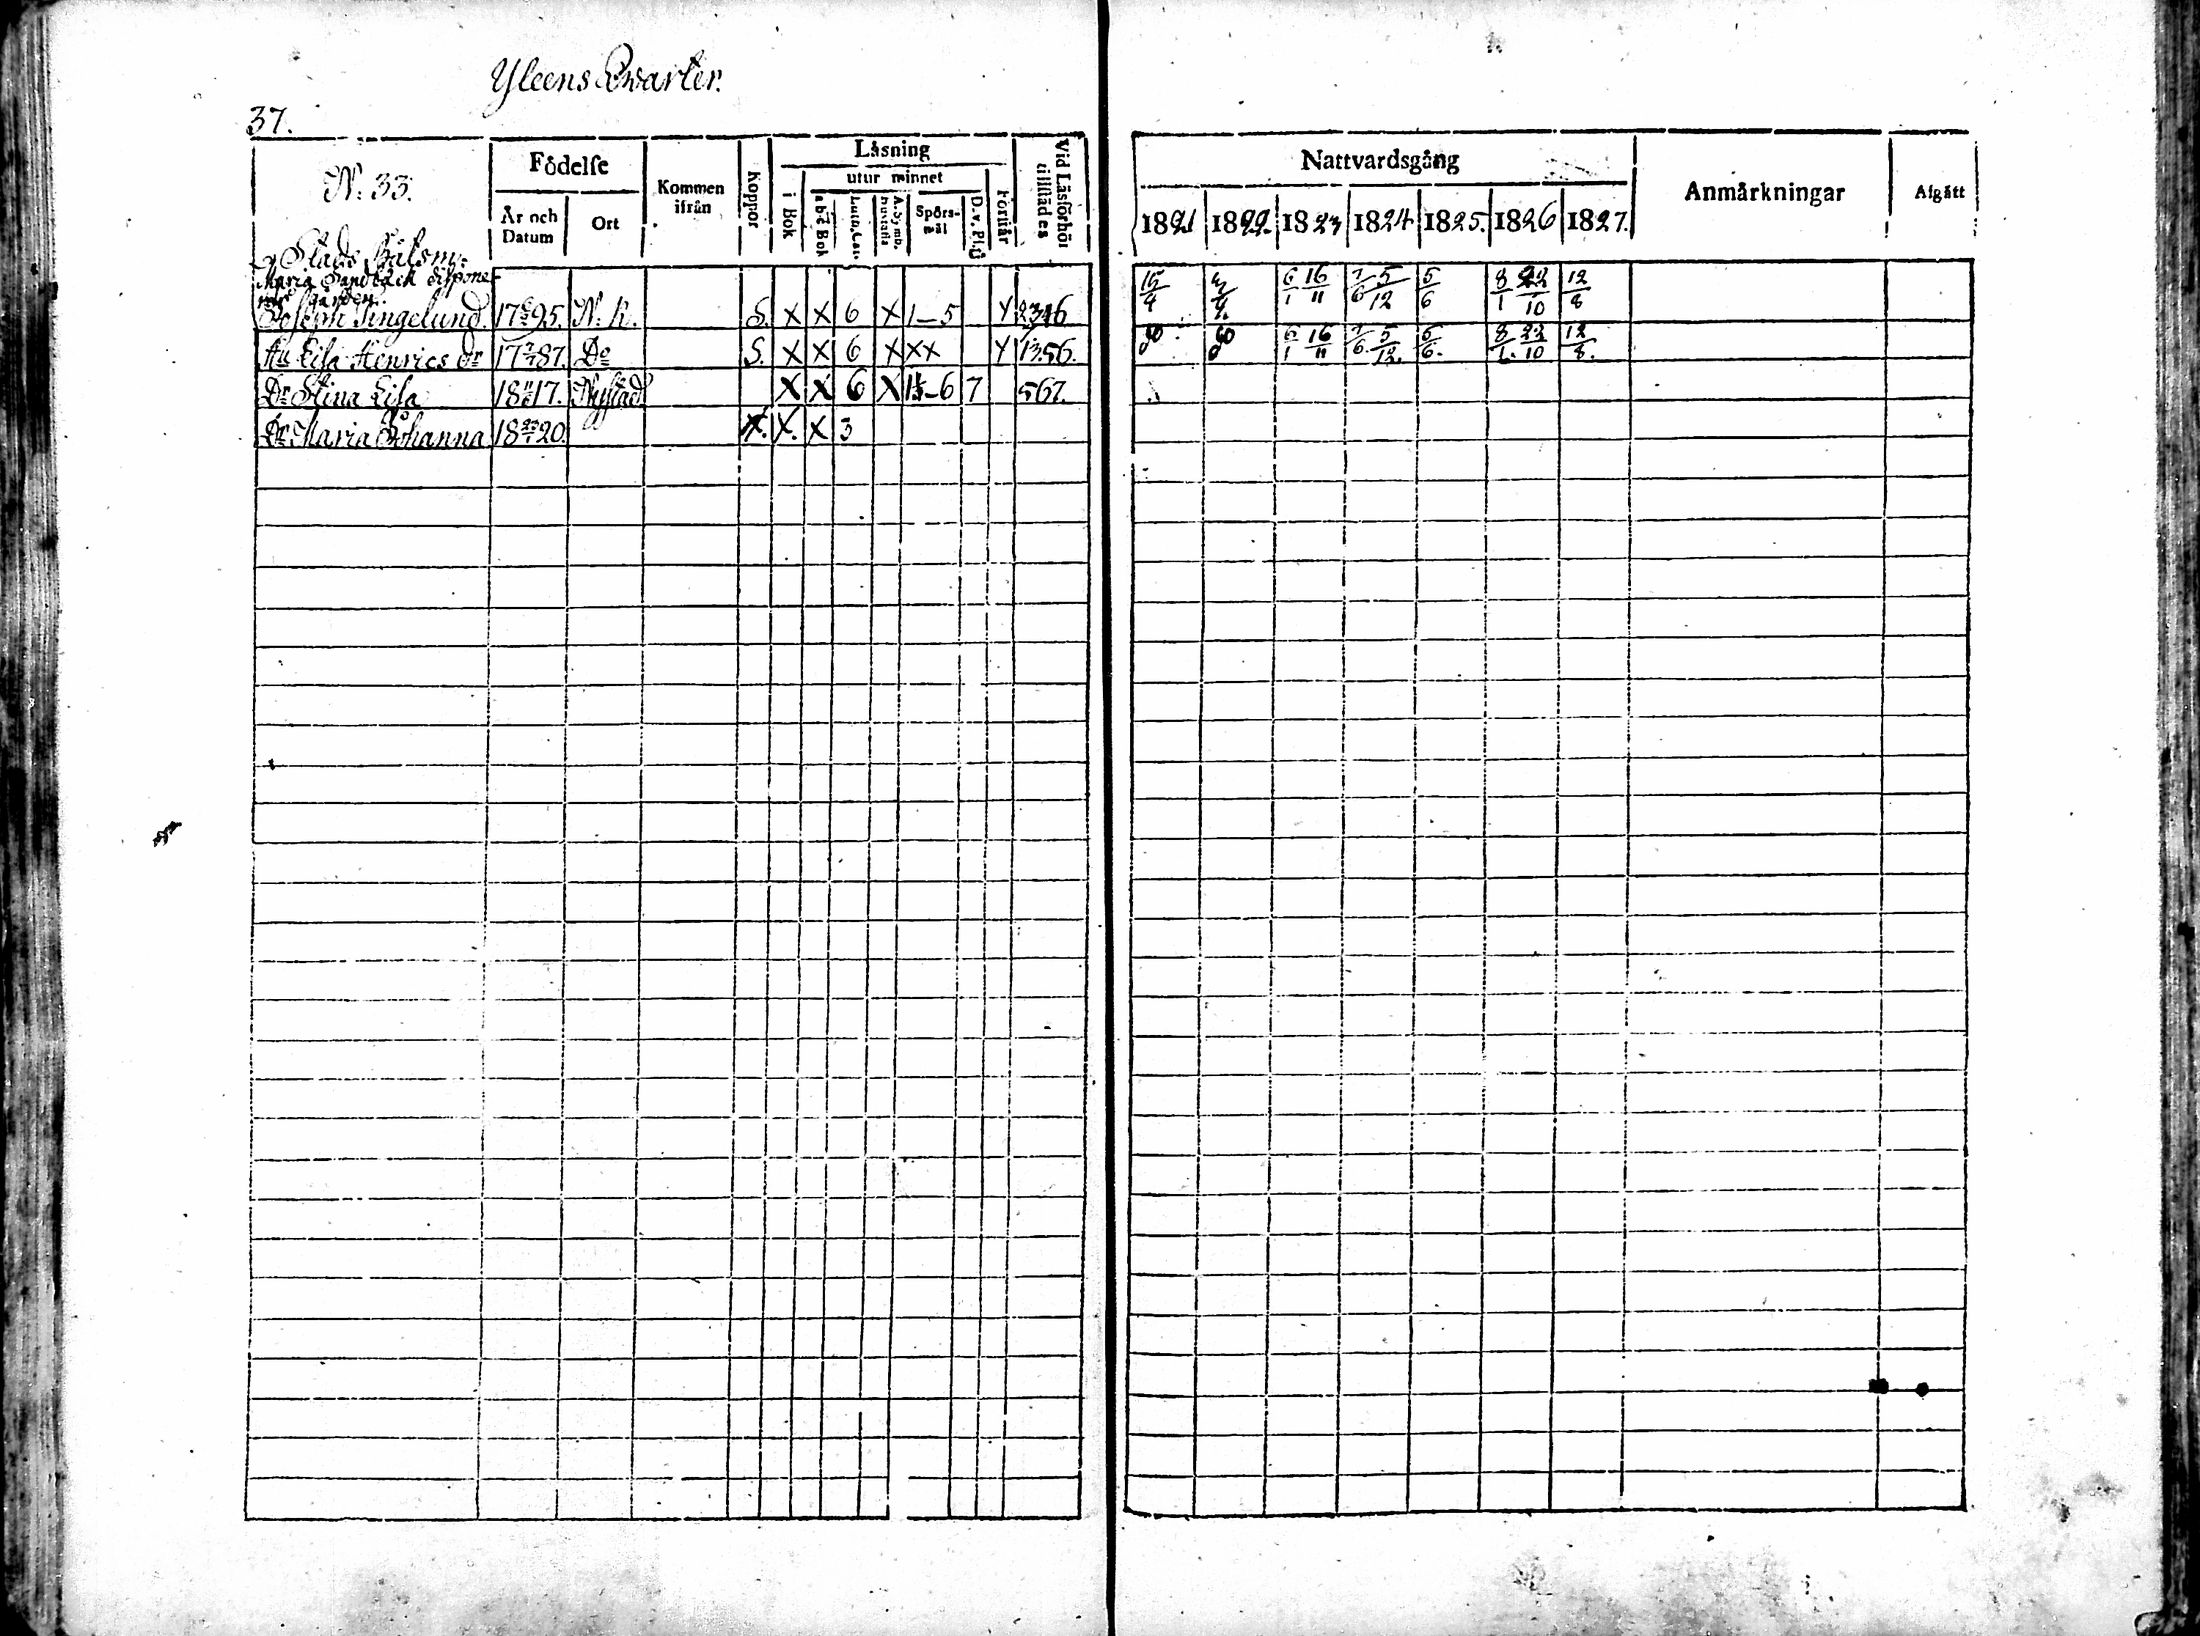 Yleens Qwarter.
37.
N: 33.
Födelse
År och Datum
Ort
Kommen ifrån
Koppor
Läsning
i Bok
utur minnet
abc Bok
Luth. Cat.
A. Symb. Hustafla
Spörsmål
D. v. Pf.
Förstår
Vid Läsförhör tillstädes
Nattvardsgång
1821 1822. 1823 1824 1825. 1826 1827.
Anmärkningar
Afgått
Stads
Maria Sandbäck dispone-
rar gården.
Joseph Tingelund. 17 95. N. K. S. X X 6 X 1–5 Y 2346 15/4 6/1 16/11 7/6 5/12 5/6 8/1 22/10 12/8
Hu Lisa Henrics dr 17 87. Do S. X X 6 X XX Y 1356. 6/1 16/11 7/6. 5/12. 5/6. 8/1. 22/10 12/8.
Dr Stina Lisa 18 17. Nystad X X 6 X –6 7 567.
Dr Maria Johanna 18 23/1 20. X. X. X 3